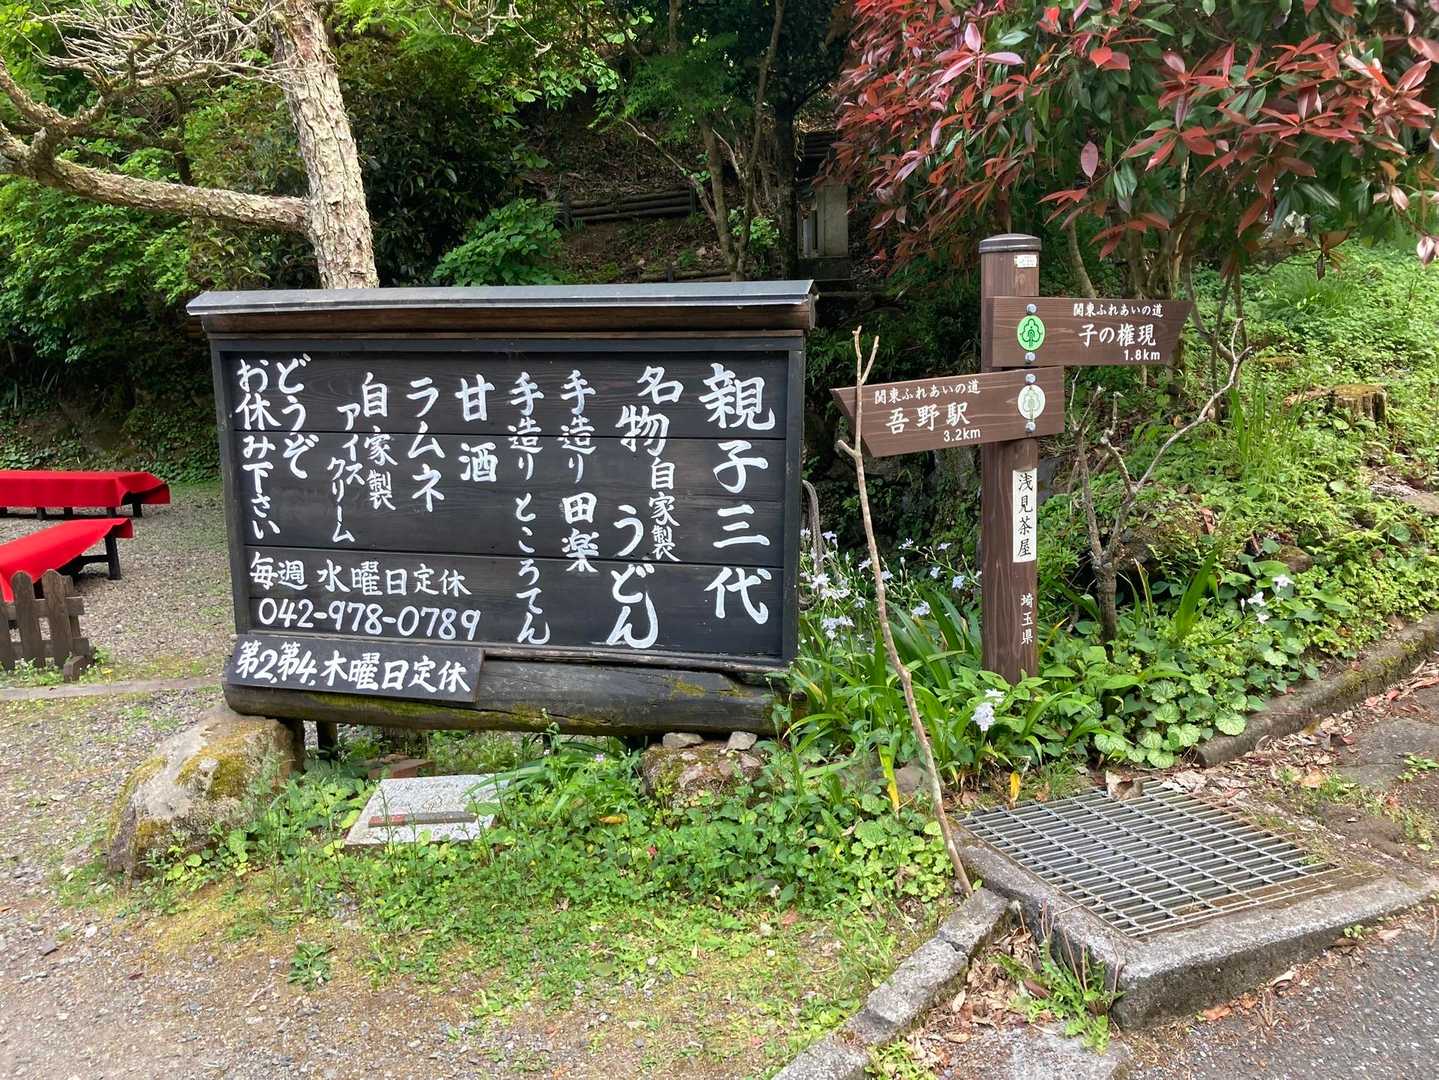 親子三代
名物
自家製
うどん
手造り 田楽
手造り ところてん
甘酒
ラムネ
自家製
アイス
クリーム
どうぞ
お休み下さい
毎週 水曜日定休
042-978-0789
第2.第4.木曜日定休
関東ふれあいの道
子の権現
1.8km
関東ふれあいの道
吾野駅
3.2km
浅見茶屋
埼玉県